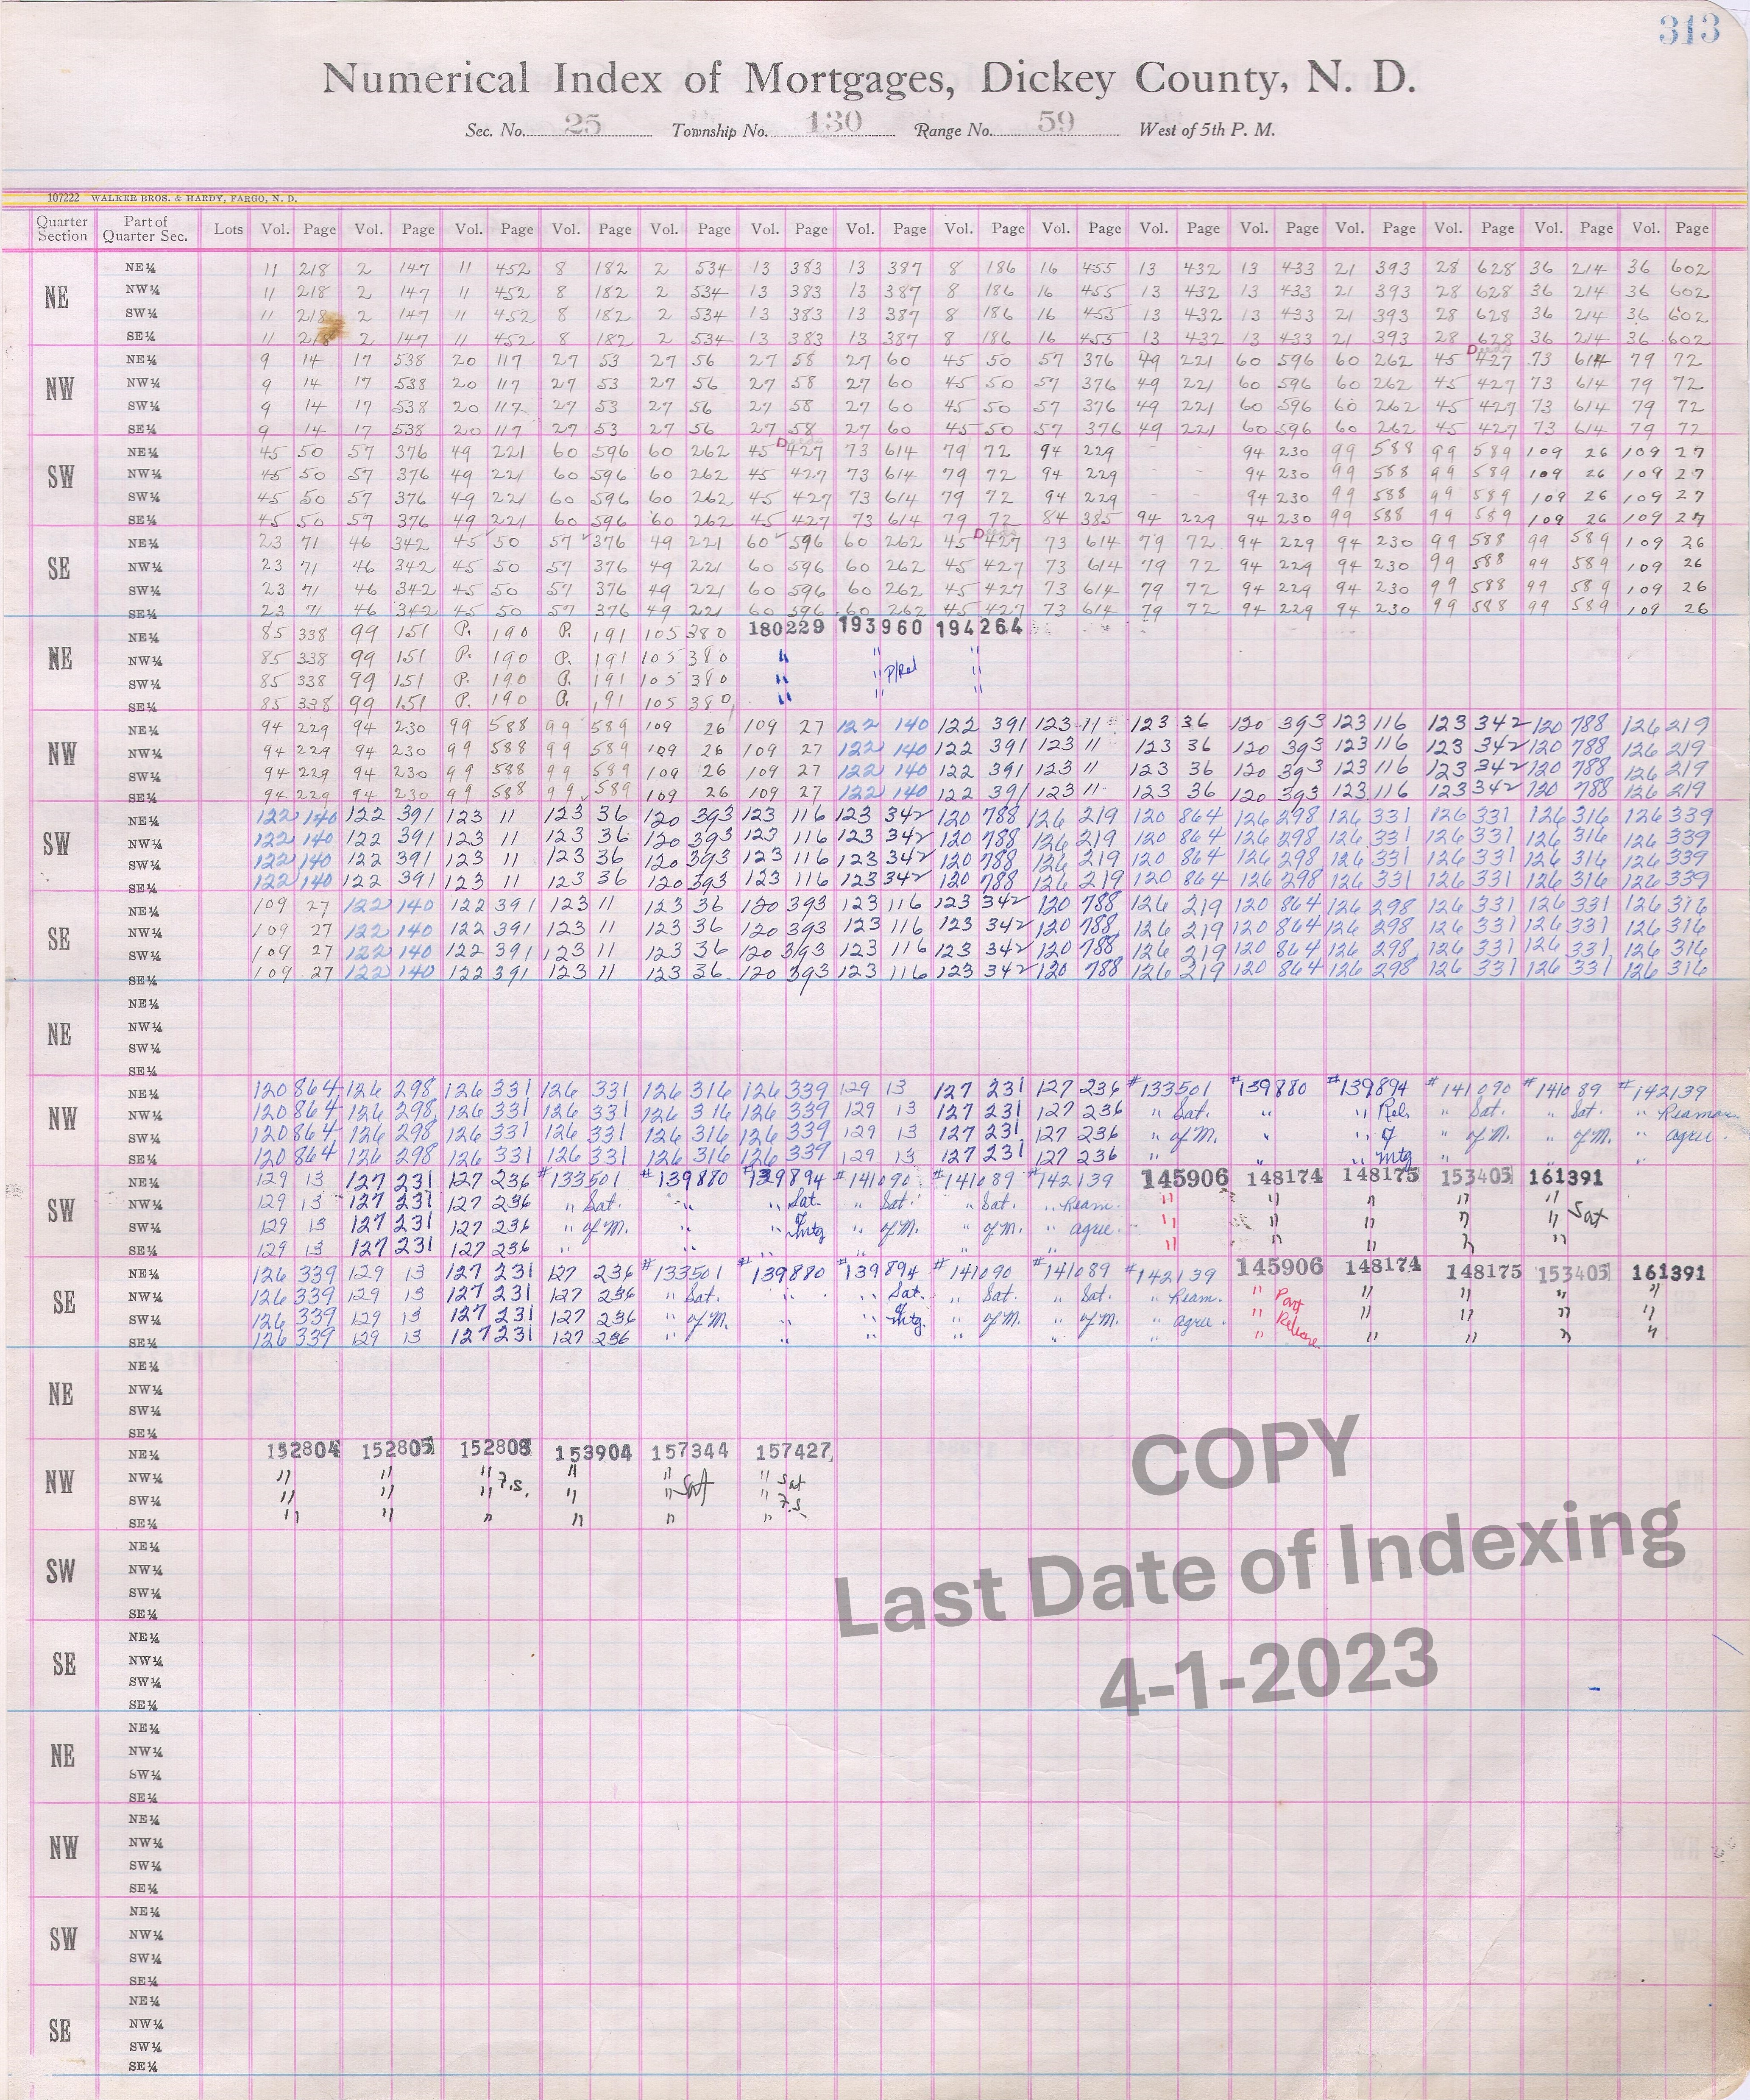 313
Numerical Index of Mortgages, Dickey County, N. D.
Sec. No. 25 Township No. 130 Range No. 59 West of 5th P. M.
107222 WALKER BROS. & HARDY, FARGO, N. D.
Quarter Section Part of Quarter Sec. Lots Vol. Page Vol. Page Vol. Page Vol. Page Vol. Page Vol. Page Vol. Page Vol. Page Vol. Page Vol. Page Vol. Page Vol. Page Vol. Page Vol. Page Vol. Page
NE
NE¼ 11 218 2 147 11 452 8 182 2 534 13 383 13 387 8 186 16 455 13 432 13 433 21 393 28 628 36 214 36 602
NW¼ 11 218 2 147 11 452 8 182 2 534 13 383 13 387 8 186 16 455 13 432 13 433 21 393 28 628 36 214 36 602
SW¼ 11 218 2 147 11 452 8 182 2 534 13 383 13 387 8 186 16 455 13 432 13 433 21 393 28 628 36 214 36 602
SE¼ 11 218 2 147 11 452 8 182 2 534 13 383 13 387 8 186 16 455 13 432 13 433 21 393 28 628 36 214 36 602
NW
Deeds
NE¼ 9 14 17 538 20 117 27 53 27 56 27 58 27 60 45 50 57 376 49 221 60 596 60 262 45 427 73 614 79 72
NW¼ 9 14 17 538 20 117 27 53 27 56 27 58 27 60 45 50 57 376 49 221 60 596 60 262 45 427 73 614 79 72
SW¼ 9 14 17 538 20 117 27 53 27 56 27 58 27 60 45 50 57 376 49 221 60 596 60 262 45 427 73 614 79 72
SE¼ 9 14 17 538 20 117 27 53 27 56 27 58 27 60 45 50 57 376 49 221 60 596 60 262 45 427 73 614 79 72
SW
Deeds
NE¼ 45 50 57 376 49 221 60 596 60 262 45 427 73 614 79 72 94 229 - - 94 230 99 588 99 589 109 26 109 27
NW¼ 45 50 57 376 49 221 60 596 60 262 45 427 73 614 79 72 94 229 94 230 99 588 99 589 109 26 109 27
SW¼ 45 50 57 376 49 221 60 596 60 262 45 427 73 614 79 72 94 229 - - 94 230 99 588 99 589 109 26 109 27
SE¼ 45 50 57 376 49 221 60 596 60 262 45 427 73 614 79 72 84 385 94 229 94 230 99 588 99 589 109 26 109 27
SE
Deeds
NE¼ 23 71 46 342 45 50 57 376 49 221 60 596 60 262 45 427 73 614 79 72 94 229 94 230 99 588 99 589 109 26
NW¼ 23 71 46 342 45 50 57 376 49 221 60 596 60 262 45 427 73 614 79 72 94 229 94 230 99 588 99 589 109 26
SW¼ 23 71 46 342 45 50 57 376 49 221 60 596 60 262 45 427 73 614 79 72 94 229 94 230 99 588 99 589 109 26
SE¼ 23 71 46 342 45 50 57 376 49 221 60 596 60 262 45 427 73 614 79 72 94 229 94 230 99 588 99 589 109 26
NE
NE¼ 85 338 99 151 P. 190 P. 191 105 380 180229 193960 194264
NW¼ 85 338 99 151 P. 190 P. 191 105 380 " " P/Rel "
SW¼ 85 338 99 151 P. 190 P. 191 105 380 " " "
SE¼ 85 338 99 151 P. 190 P. 191 105 380 " " "
NW
NE¼ 94 229 94 230 99 588 99 589 109 26 109 27 122 140 122 391 123 11 123 36 120 393 123 116 123 342 120 788 126 219
NW¼ 94 229 94 230 99 588 99 589 109 26 109 27 122 140 122 391 123 11 123 36 120 393 123 116 123 342 120 788 126 219
SW¼ 94 229 94 230 99 588 99 589 109 26 109 27 122 140 122 391 123 11 123 36 120 393 123 116 123 342 120 788 126 219
SE¼ 94 229 94 230 99 588 99 589 109 26 109 27 122 140 122 391 123 11 123 36 120 393 123 116 123 342 120 788 126 219
SW
NE¼ 122 140 122 391 123 11 123 36 120 393 123 116 123 342 120 788 126 219 120 864 126 298 126 331 126 331 126 316 126 339
NW¼ 122 140 122 391 123 11 123 36 120 393 123 116 123 342 120 788 126 219 120 864 126 298 126 331 126 331 126 316 126 339
SW¼ 122 140 122 391 123 11 123 36 120 393 123 116 123 342 120 788 126 219 120 864 126 298 126 331 126 331 126 316 126 339
SE¼ 122 140 122 391 123 11 123 36 120 393 123 116 123 342 120 788 126 219 120 864 126 298 126 331 126 331 126 316 126 339
SE
NE¼ 109 27 122 140 122 391 123 11 123 36 120 393 123 116 123 342 120 788 126 219 120 864 126 298 126 331 126 331 126 316
NW¼ 109 27 122 140 122 391 123 11 123 36 120 393 123 116 123 342 120 788 126 219 120 864 126 298 126 331 126 331 126 316
SW¼ 109 27 122 140 122 391 123 11 123 36 120 393 123 116 123 342 120 788 126 219 120 864 126 298 126 331 126 331 126 316
SE¼ 109 27 122 140 122 391 123 11 123 36 120 393 123 116 123 342 120 788 126 219 120 864 126 298 126 331 126 331 126 316
NE
NE¼
NW¼
SW¼
SE¼
NW
NE¼ 120 864 126 298 126 331 126 331 126 316 126 339 129 13 127 231 127 236 #133501 #139880 #139894 #141090 #141089 #142139
NW¼ 120 864 126 298 126 331 126 331 126 316 126 339 129 13 127 231 127 236 " Sat. " " Rel. " Sat. " Sat. " Reamor.
SW¼ 120 864 126 298 126 331 126 331 126 316 126 339 129 13 127 231 127 236 " of M. " " of " of M. " of M. " agree.
SE¼ 120 864 126 298 126 331 126 331 126 316 126 339 129 13 127 231 127 236 " " " Mtg " " "
SW
NE¼ 129 13 127 231 127 236 #133501 #139880 #139894 #141090 #141089 #142139 145906 148174 148175 153405 161391
NW¼ 129 13 127 231 127 236 " Sat. " " Sat. " Sat. " Sat. " Ream. " " " " " Sat
SW¼ 129 13 127 231 127 236 " of M. " " of Mtg " of M. " of M. " agree. " " " " "
SE¼ 129 13 127 231 127 236 " " " " " " " " " " "
SE
NE¼ 126 339 129 13 127 231 127 236 #133501 #139880 #139894 #141090 #141089 #142139 145906 148174 148175 153405 161391
NW¼ 126 339 129 13 127 231 127 236 " Sat. " " Sat. " Sat. " Sat. " Ream. " Part " " " "
SW¼ 126 339 129 13 127 231 127 236 " of M. " " of Mtg. " of M. " of M. " agree. " Release " " " "
SE¼ 126 339 129 13 127 231 127 236 " " " " " " " " " " "
NE
NE¼
NW¼
SW¼
SE¼
NW
NE¼ 152804 152805 152808 153904 157344 157427
NW¼ " " " F.S. " " Sat " Sat
SW¼ " " " " " " F.S.
SE¼ " " " " " "
SW
NE¼
NW¼
SW¼
SE¼
SE
NE¼
NW¼
SW¼
SE¼
NE
NE¼
NW¼
SW¼
SE¼
NW
NE¼
NW¼
SW¼
SE¼
SW
NE¼
NW¼
SW¼
SE¼
SE
NE¼
NW¼
SW¼
SE¼
COPY
Last Date of Indexing
4-1-2023